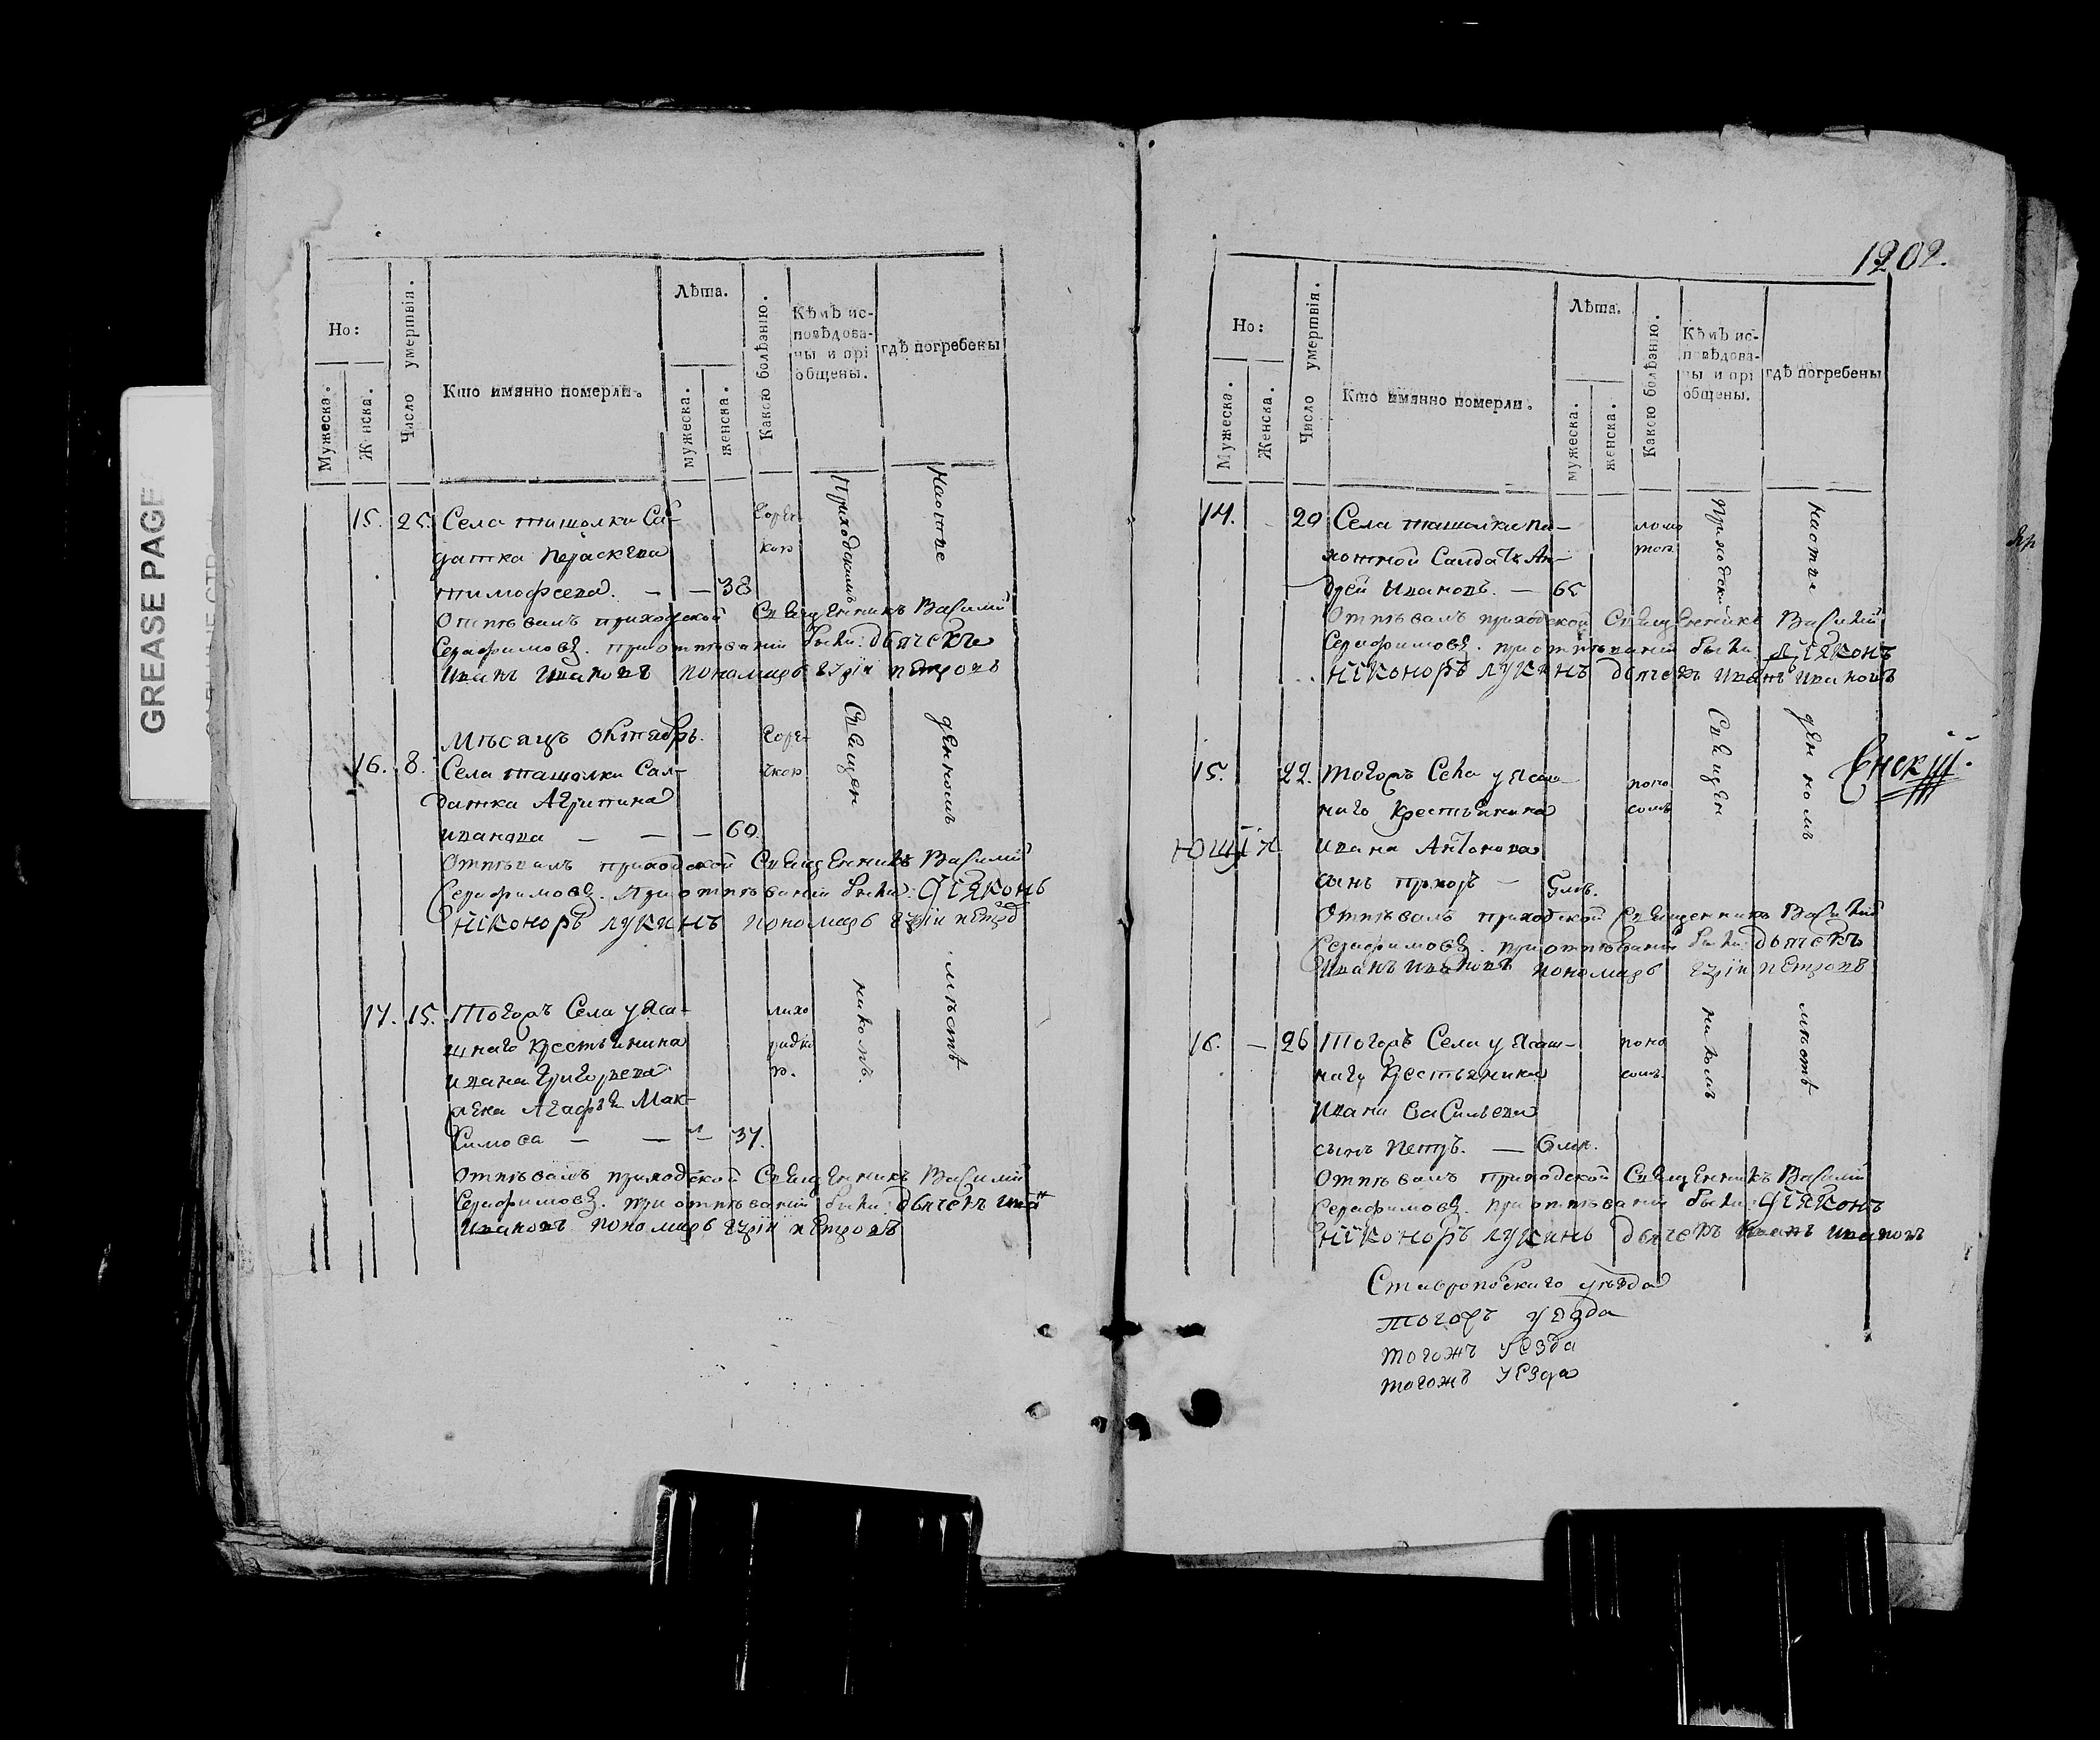 GREASE PAGE
Но:
Мужеска.
Женска.
Число умертвія.
Кто имянно померли.
Лѣта.
мужеска.
женска.
Какою болѣзнію.
Кѣмъ ис-
повѣдова-
ны и прі
общены.
гдѣ погребены
Приходскимъ
Священ
никомъ.
На отве
денномъ
мѣстѣ
15. 25. Села ташолки Сал-
датка Параскева
тимофеева. — — 38
Горяч
кою
Отпѣвалъ приходской Священникъ Василий
Серафимовъ. при отпѣвании были: дьячекъ
Иванъ Ивановъ пономарь Егоріи петровъ
Мѣсацъ октябрь.
16. 8. Села ташолки Сал-
датка Агрипина
иванова — — — 60.
Горя-
чкою
Отпѣвалъ приходской Священникъ Василий
Серафимовъ. При отпѣвании были: Діяконъ
Ніконоръ лукинъ пономарь Егоріи петров
17. 15. Тогожъ Села уяса-
шнаго крестьянина
ивана Григорьева
жена Агафья Мак-
симова — — — 37.
лихо
радко
ю.
Отпѣвалъ приходской Священникъ Василий
Серафимовъ. при отпѣвании были: дьячекъ Иван
Ивановъ пономарь Егоріи петровъ
1202.
Но:
Мужеска.
Женска.
Число умертвія.
Кто имянно померли.
Лѣта.
мужеска.
женска.
Какою болѣзнію.
Кѣмъ ис-
повѣдова-
ны и прі
общены.
гдѣ погребены
Приходски
Священ
никомъ
На отве
денномъ
мѣстѣ
14. 20 Села ташолки па-
хотной Салдатъ Ан-
дрей Ивановъ. — 65
ломо
тою
Отпѣвалъ приходской Священникъ Василий
Серафимовъ. при отпѣвании были діяконъ
Ніконоръ лукинъ дьячекъ иванъ ивановъ
15. 22. Тогожъ Села уясаш-
наго крестьянина
ивана Антонова
сынъ — 5 мѣс.
поно
сомъ
ющія
Отпѣвалъ приходской Священникъ Василий
Серафимовъ. при отпѣвании были: дьячекъ
Иванъ ивановъ пономарь Егоріи петровъ
16. — 26 Тогожъ Села уясаш-
наго крестьянина
Ивана васильева
сынъ петръ. — 6 мѣс.
поно
сомъ
Отпѣвалъ приходской Священникъ Василий
Серафимовъ. при отпѣвании были: Діяконъ
Ніконоръ лукинъ дьячекъ иванъ ивановъ
Ставропольскаго уѣзда
тогожъ уѣзда
тогожъ уезда
тогожъ уезда